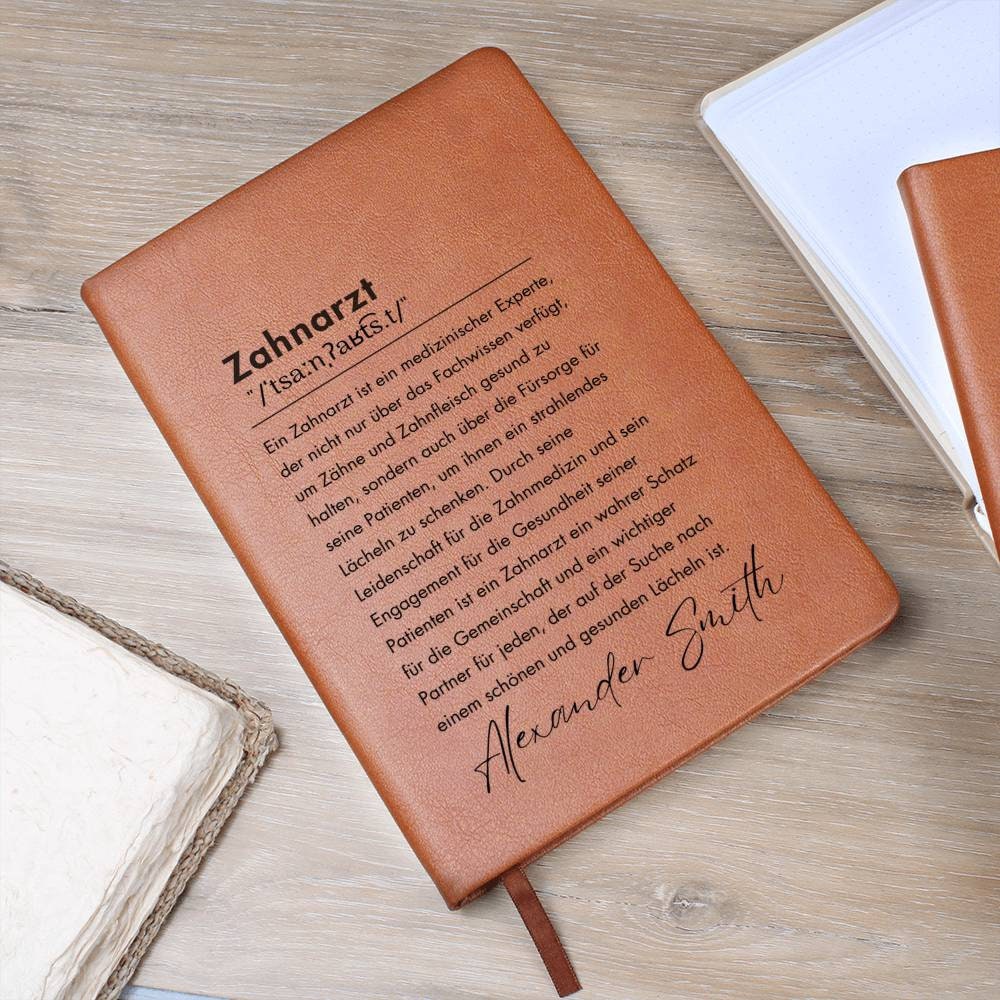 Zahnarzt
"/'tsaːnˌʔaʁt͡s.t/"
Ein Zahnarzt ist ein medizinischer Experte,
der nicht nur über das Fachwissen verfügt,
um Zähne und Zahnfleisch gesund zu
halten, sondern auch über die Fürsorge für
seine Patienten, um ihnen ein strahlendes
Lächeln zu schenken. Durch seine
Leidenschaft für die Zahnmedizin und sein
Engagement für die Gesundheit seiner
Patienten ist ein Zahnarzt ein wahrer Schatz
für die Gemeinschaft und ein wichtiger
Partner für jeden, der auf der Suche nach
einem schönen und gesunden Lächeln ist.
Alexander Smith